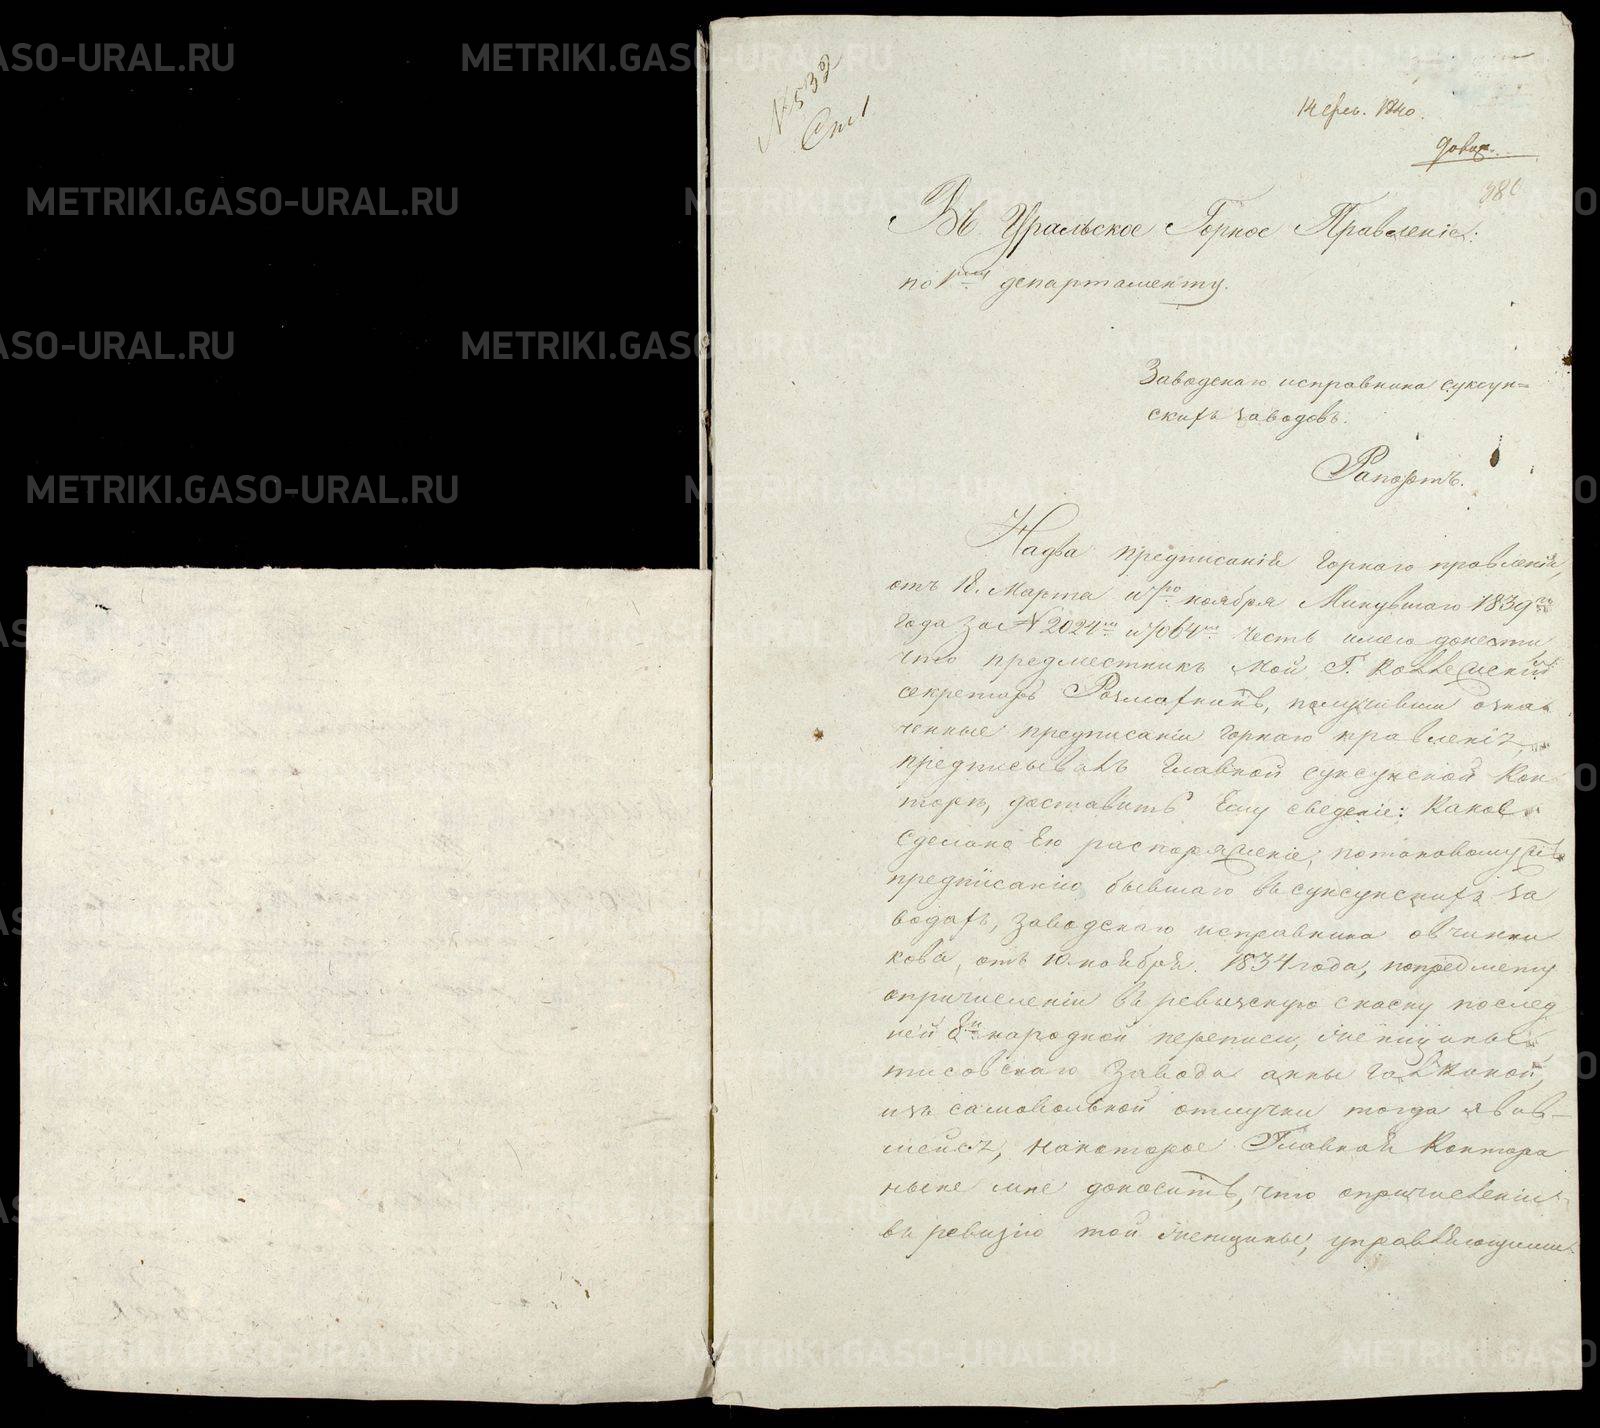 № 532
Ст 1
14 фев. 1840.
Въ Уральское Горное Правленіе:
по 1му департаменту.
Заводскаго исправника суксун=
скихъ заводовъ.
Рапортъ.
На два предписанія Горнаго правленія,
отъ 18. Марта и 7го ноября Минувшаго 1839го
года за № 2024м и 7064м честь имею донести
что предместникъ мой Г. Коллежскій
секретарь, получивши означ
ченные предписаніи Горнаго правленія,
предписывалъ Главной суксунской Кон
торе, доставить Ему сведеніе: Какое
сделано Ею распоряженіе, по таковому
предписанію бывшаго въ суксунскихъ за
водахъ, заводскаго исправника овчинни
кова, отъ 10 ноября. 1834 года, по предмету
опричисленіи въ ревизскую скаску послед
ней 8й народной переписи, женщины
тисовскаго завода анны
изъ самовольной отлучки тогда явив-
шейся, на которое Главной Контора
ныне мне доноситъ, что опричисленіи
въ ревизію той женщины, управляющимъ